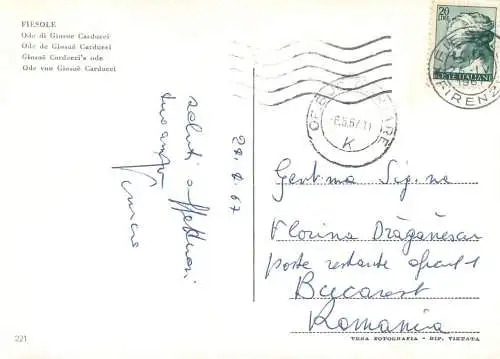 FIESOLE
Ode di Giosue Carducci
Ode de Giosuè Carducci
Giosuè Carducci's ode
Ode von Giosuè Carducci
20
LIRE
POSTE ITALIANE
FIRENZE
-6.5.67.11
K
saluti affettuosi
Gentima Sig.na
Florina Drăgănescu
poste restante oficul 1
Bucarest
Romania
221
VERA FOTOGRAFIA - RIP. VIETATA